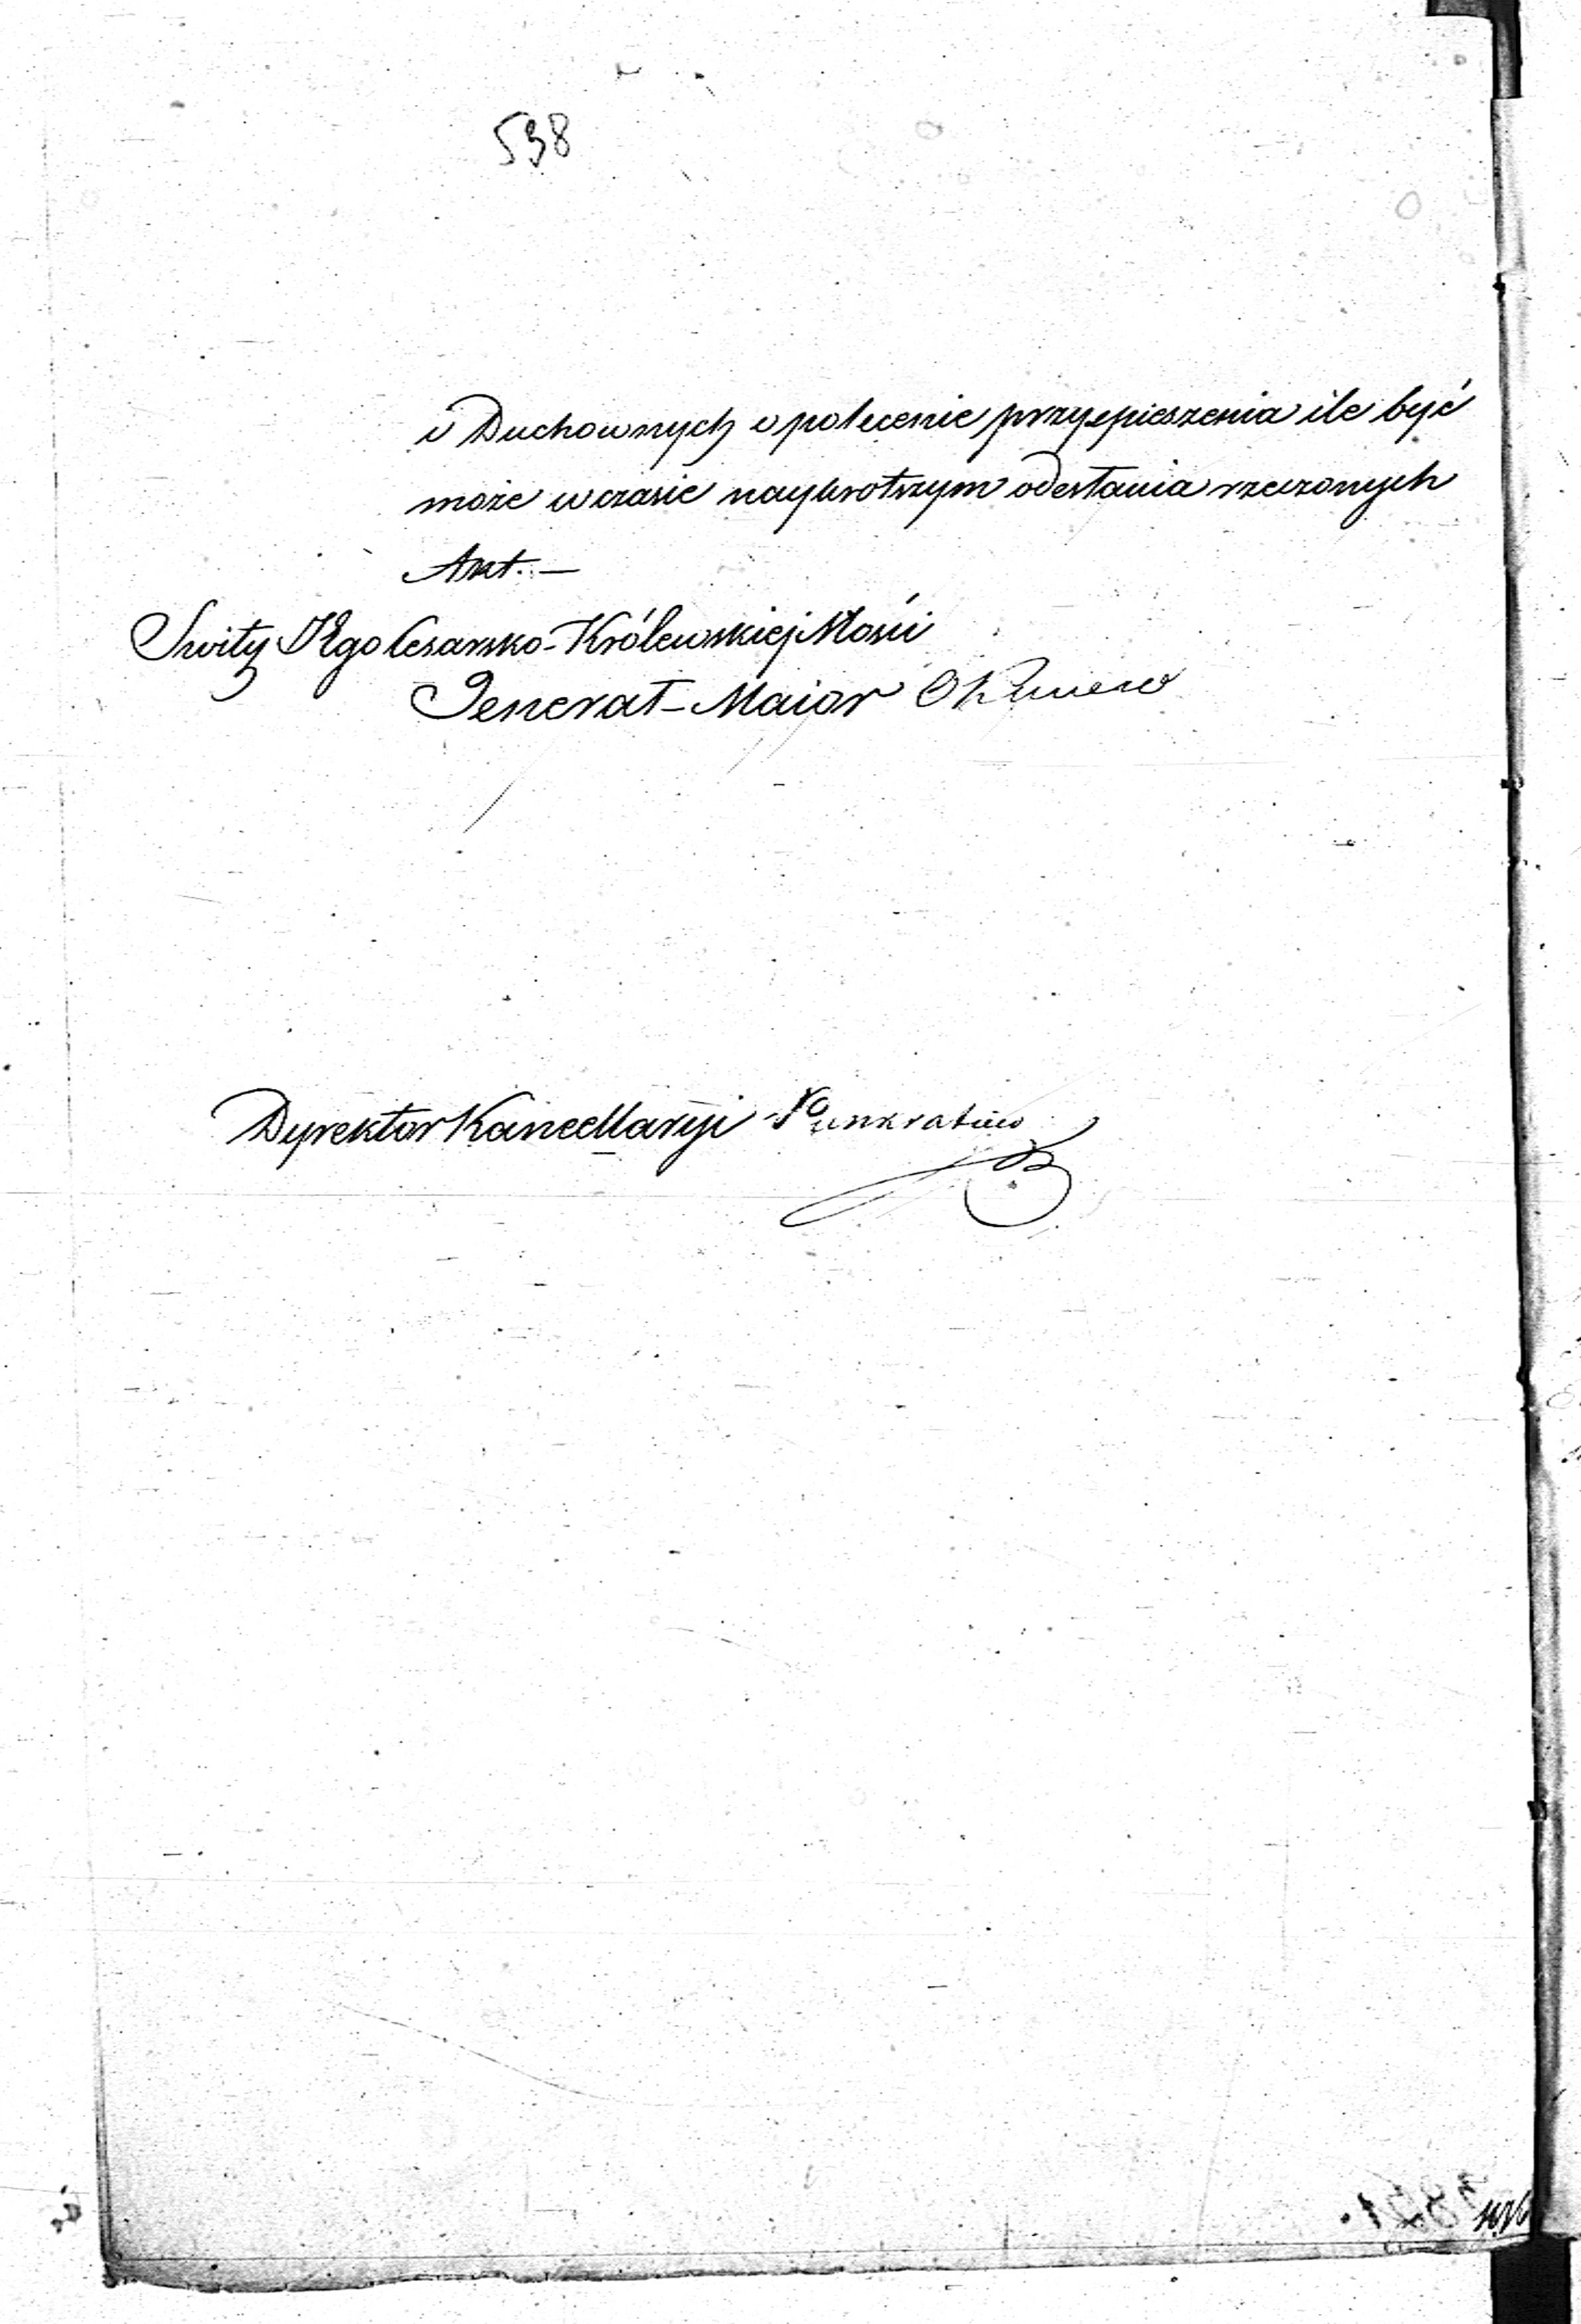 538
i Duchownych o polecenie przyspieszenia ile być
może w czasie naykrotszym odesłania rzeczonych
Akt. —
Swity JEgo Cesarsko-Królewskiej Mości
Jenerał-Maior Okuniew
Dyrektor Kancellaryi Pankratiew